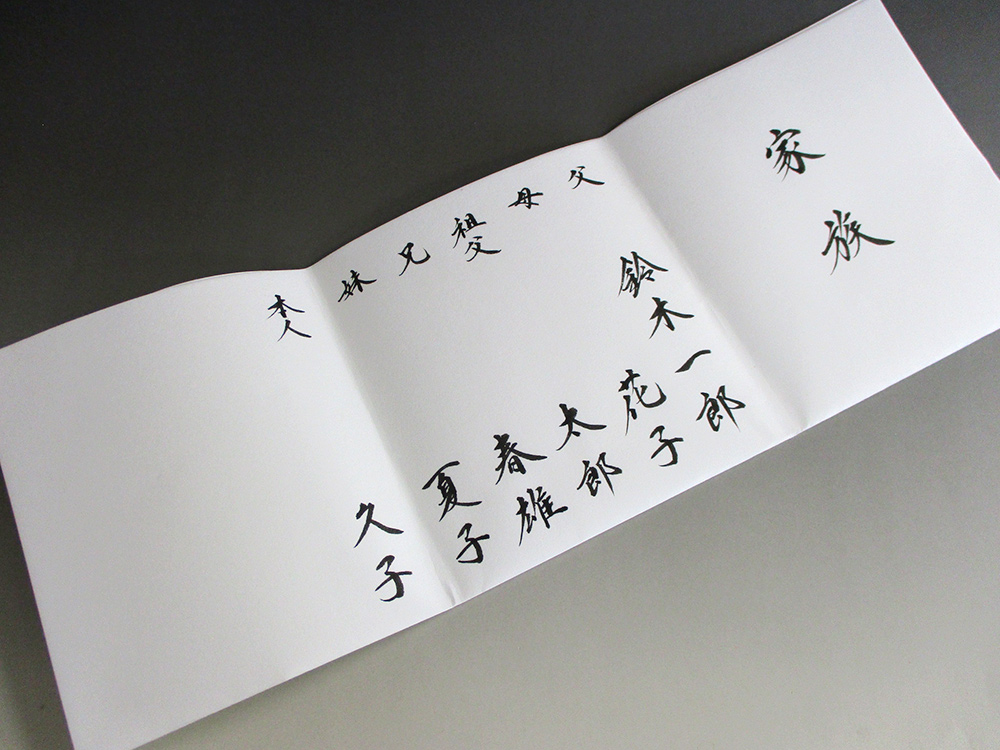 家族
父 鈴木一郎
母 花子
祖父 太郎
兄 春雄
妹 夏子
本人 久子